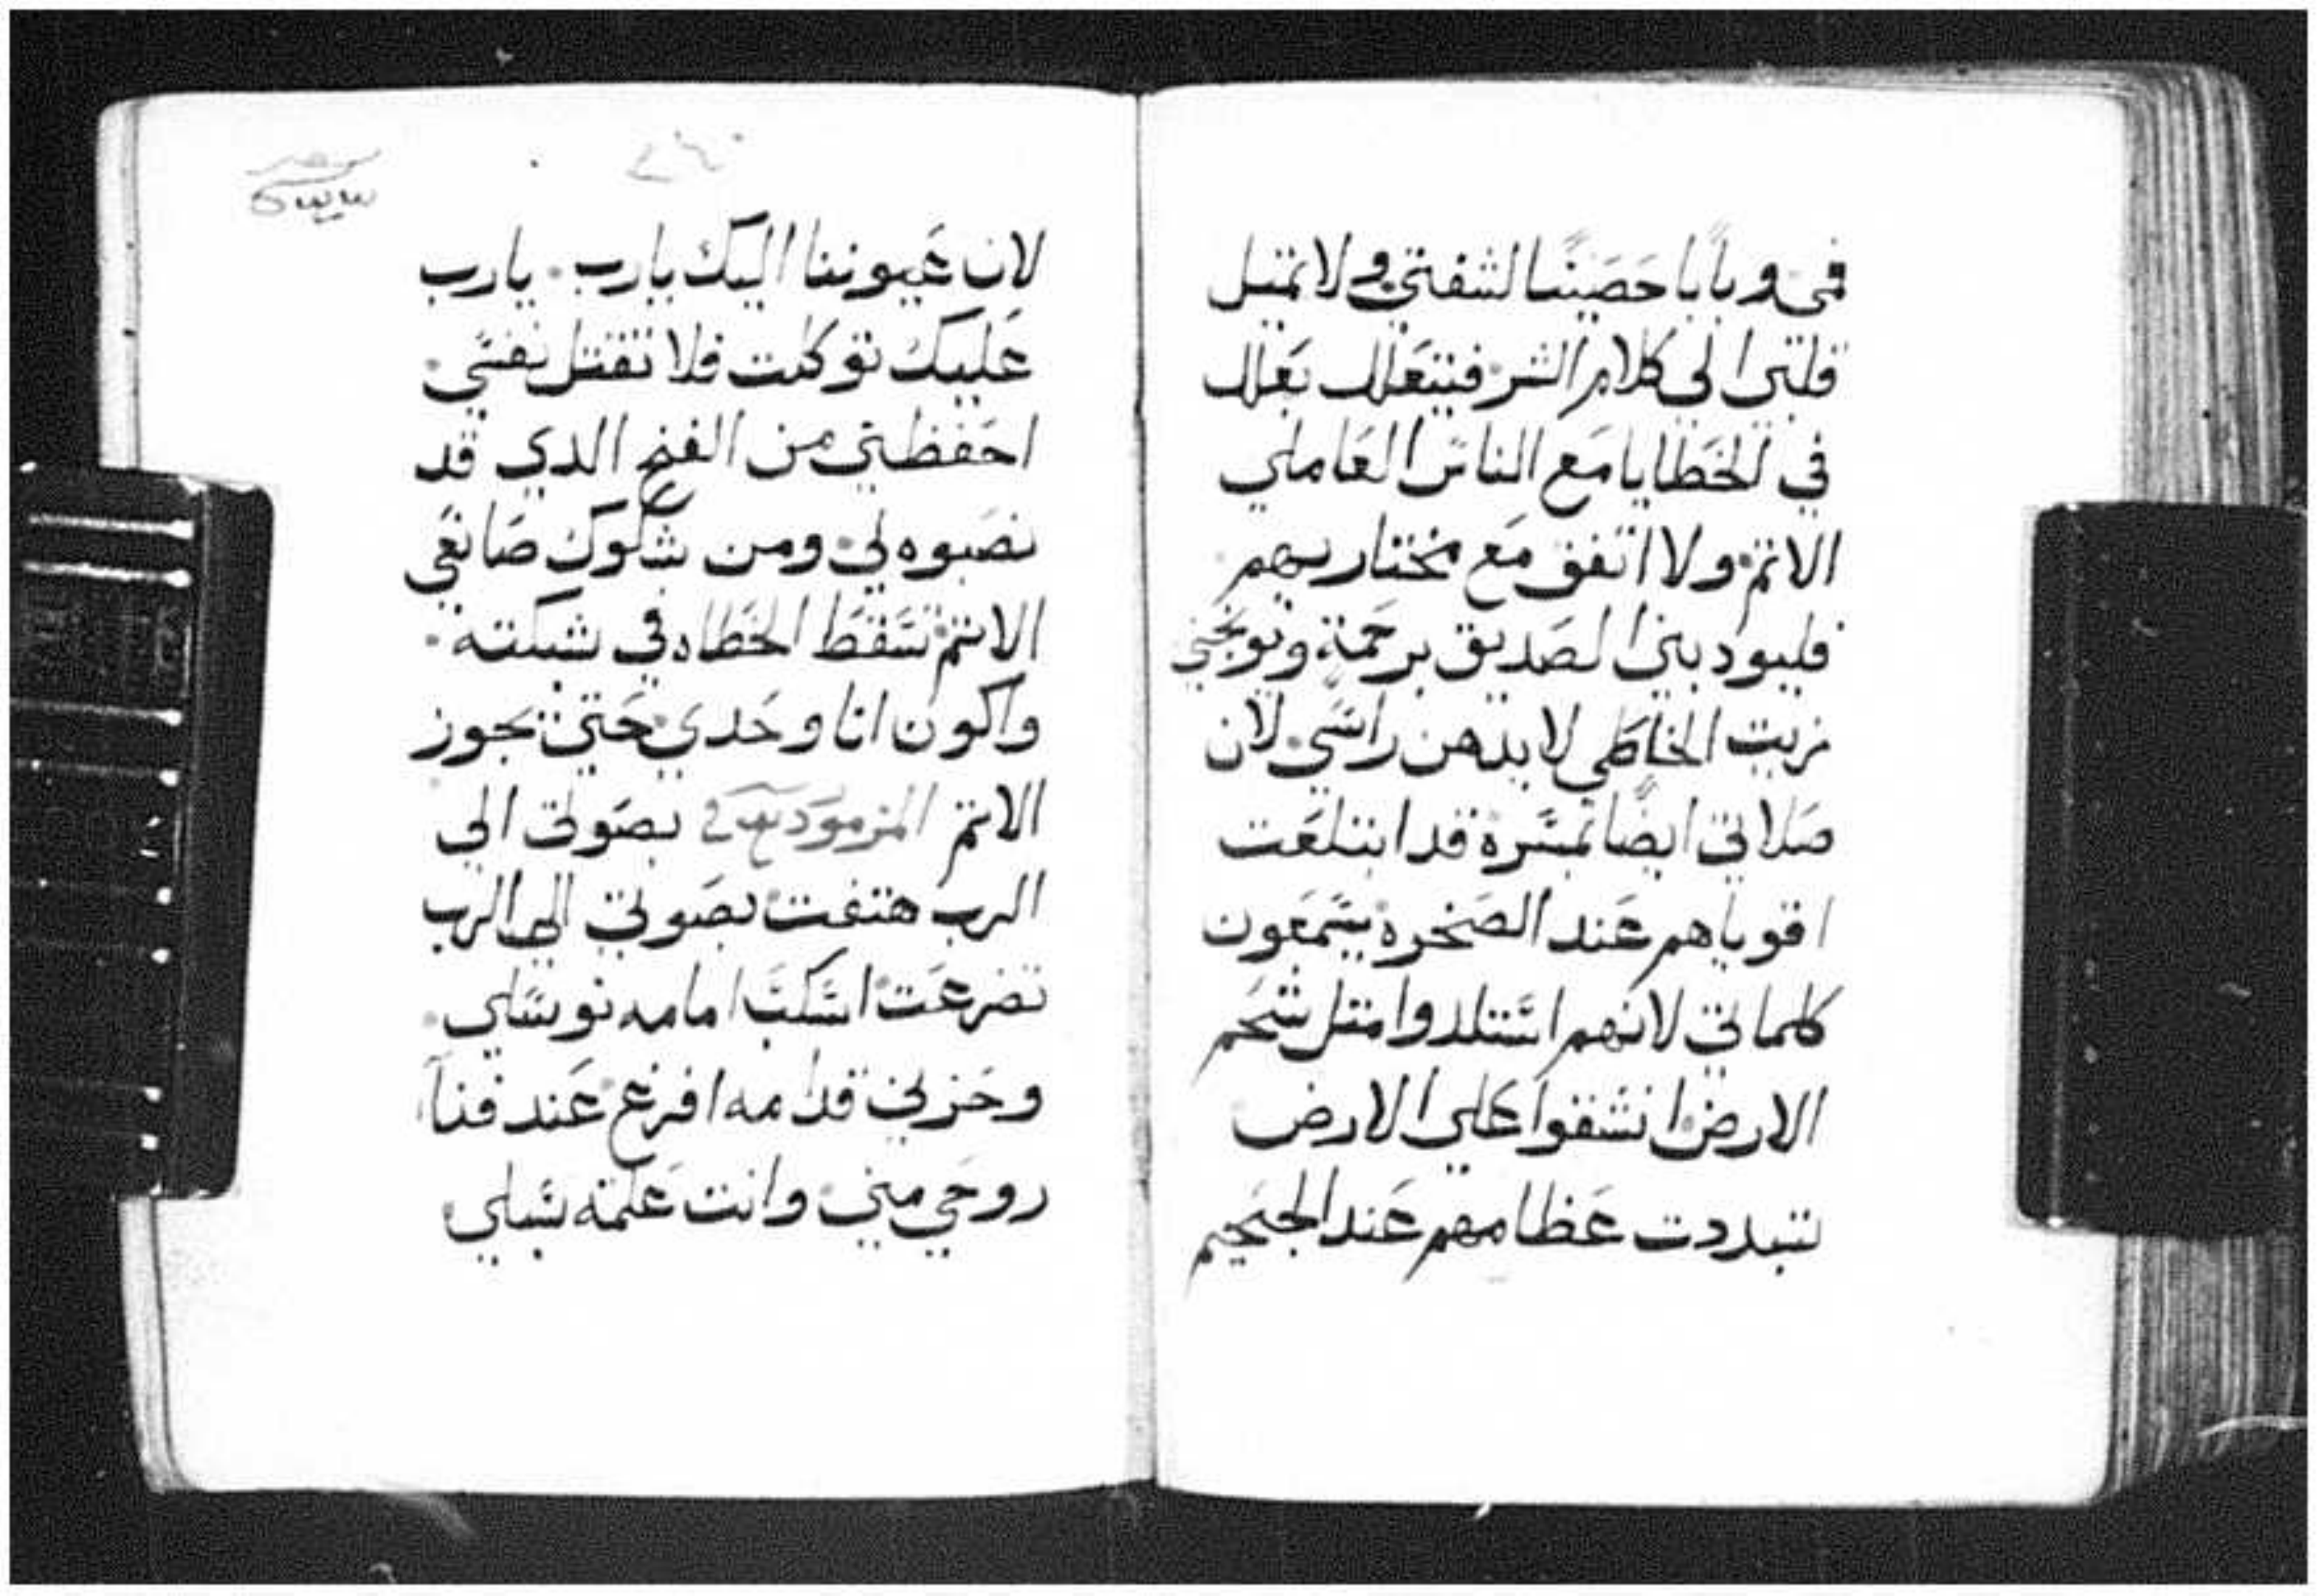 فمي وبابا حصينا لشفتي ولا تميل
قلبي الي كلام الشر فيتعلل بعلل
في الخطايا مع الناس العاملي
الاتم ولا اتفق مع مختاريهم
فليودبني الصديق برحمة ويوبخني
زيت الخاطي لا يدهن راسي لان
صلاتي ايضا بمسرة قد ابتلعت
اقوياهم عند الصخرة يسمعون
كلماتي لانهم استلدوا متل شحم
الارض انشقوا علي الارض
تبددت عظامهم عند الجحيم
لان عيوننا اليك يارب يارب
عليك توكلت فلا تقتل نفسي
احفظني من الفخ الدي قد
نصبوه لي ومن شكوك صانعي
الاتم تسقط الخطاه في شبكته
واكون انا وحدي حتي يجوز
الاتم المزمور بصوتي الي
الرب هتفت بصوتي الي الرب
تضرعت اسكب امامه توسلي
وحزني قدامه افرغ عند فنا
روحي مني وانت علمته سبلي